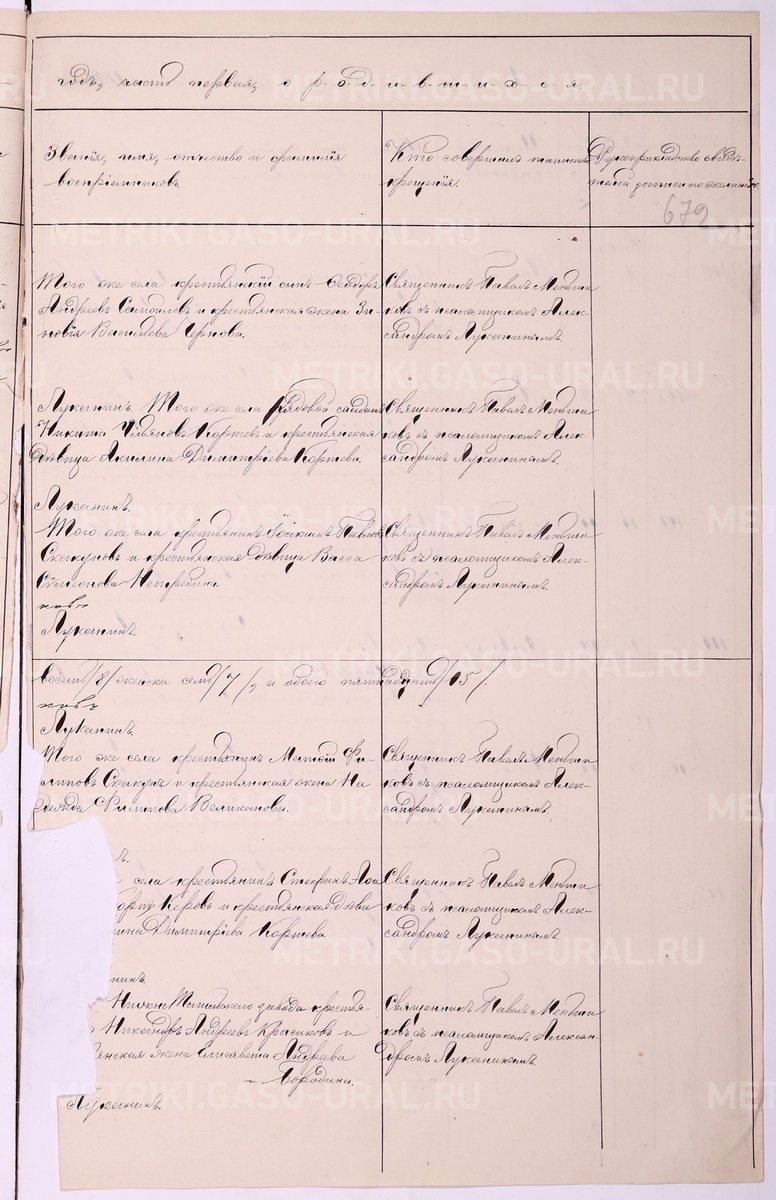 годъ, часть первая, о родившихся.
Званія, имя, отчество и фамилія
воспріемниковъ
Кто совершалъ таинство
крещенія.
Рукоприкладство свидѣ-
телей записи по желанію.
679
Того же села крестьянскій сынъ Ѳеодоръ
Андреевъ Самойловъ и крестьянская жена Зи-
новія Васильева Чернова.
Священникъ Павелъ Меньши
ковъ съ псаломщикомъ Алек-
сандромъ Луканинымъ.
Луканинъ. Того же села рядовой солдатъ
Никита Ульяновъ Коргневъ и крестьянская
дѣвица Акилина Димитріева
Священникъ Павелъ Меньши
ковъ съ псаломщикомъ Алек-
сандромъ Луканинымъ.
Луканинъ.
Того же села крестьянинъ Іоакимъ Павловъ
Скакуновъ и крестьянская дѣвица Васса
Сѵмеонова
Священникъ Павелъ Меньши
ковъ съ псаломщикомъ Алек-
сандромъ Луканинымъ.
ковъ
Луканинъ.
восемь /8/ женска семь /7/, а обоего пятнадцать /15/.
ковъ
Луканинъ.
Того же села крестьянинъ Матвій Фи-
липовъ Скакунъ и крестьянская жена На
дежда Филипова Великанова.
Священникъ Павелъ Меньши
ковъ съ псаломщикомъ Алек-
сандромъ Луканинымъ.
села крестьянинъ Стефанъ
Керовъ и крестьянская дѣви
Димитріева
Священникъ Павелъ Меньши
ковъ съ псаломщикомъ Алек-
сандромъ Луканинымъ.
нинъ.
Нижне Тагильского завода крестья-
Никандръ Андреевъ Красиковъ и
янская жена Елисавета Андреева
Бородина.
Священникъ Павелъ Меньши
ковъ съ псаломщикомъ Алексан
дромъ Луканинымъ.
Луканинъ.
METRIKI.GASO-URAL.RU